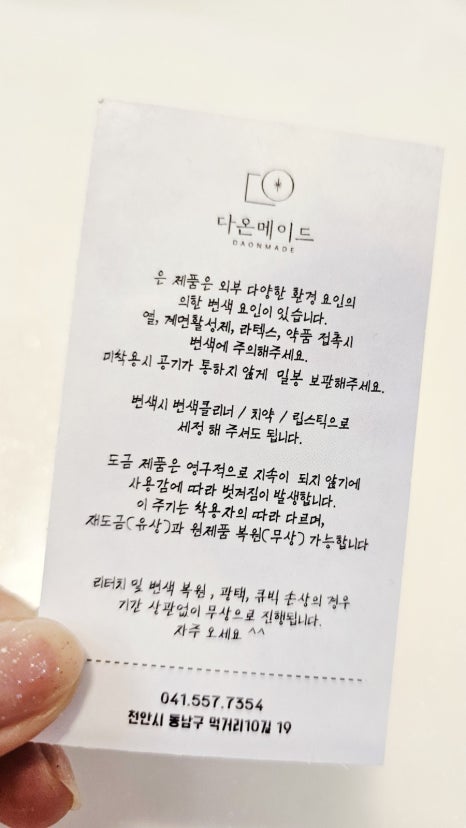 다온메이드
DAONMADE
은 제품은 외부 다양한 환경 요인의
의한 변색 요인이 있습니다.
열, 계면활성제, 라텍스, 약품 접촉시
변색에 주의해주세요.
미착용시 공기가 통하지 않게 밀봉 보관해주세요.
변색시 변색클리너 / 치약 / 립스틱으로
세정 해 주셔도 됩니다.
도금 제품은 영구적으로 지속이 되지 않기에
사용감에 따라 벗겨짐이 발생합니다.
이 주기는 착용자의 따라 다르며,
재도금(유상)과 원제품 복원(무상) 가능합니다
리터치 및 변색 복원 , 광택, 큐빅 손상의 경우
기간 상관없이 무상으로 진행됩니다.
자주 오세요 ^^
041.557.7354
천안시 동남구 먹거리10길 19